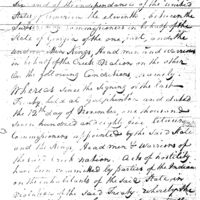 and of the independence of the United
States of America the eleventh, between the
Commissioners in behalf of the
State of Georgia of the one part, and the
Kings, Head men and warriors
in behalf of the Creek Nation on the other
on the following Conditions, namely.
Whereas since the signing of the last
Treaty held at Galphinton and dated
the 12th day of November, one thousand
seven hundred and eighty five between
Commissioners appointed by the said State
and the Kings, Head men & warriors of
the said Creek nation. Acts of hostility
have been committed by parties of the Indians
on the inhabitants of the said State in
violation of the said Treaty, whereby the